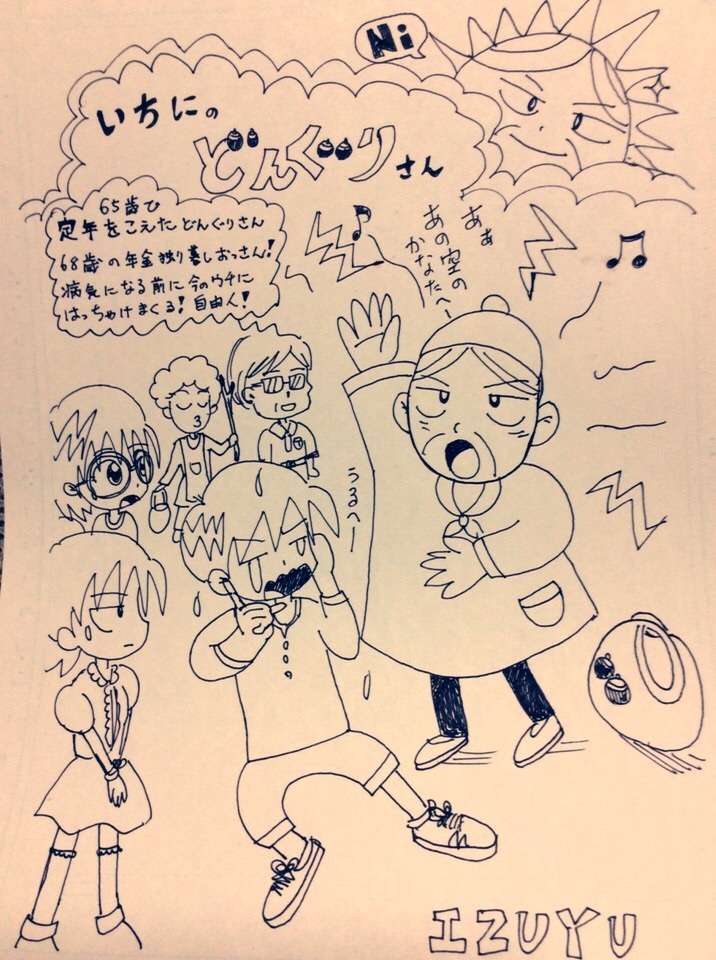 Ni
いちにの
どんぐりさん
65歳で
定年をこえたどんぐりさん
68歳の年金独り暮しおっさん!
病気になる前に今のウチに
はっちゃけまくる!自由人!
あぁ
あの空の
かなたへ〜
うるへー
IZUYU